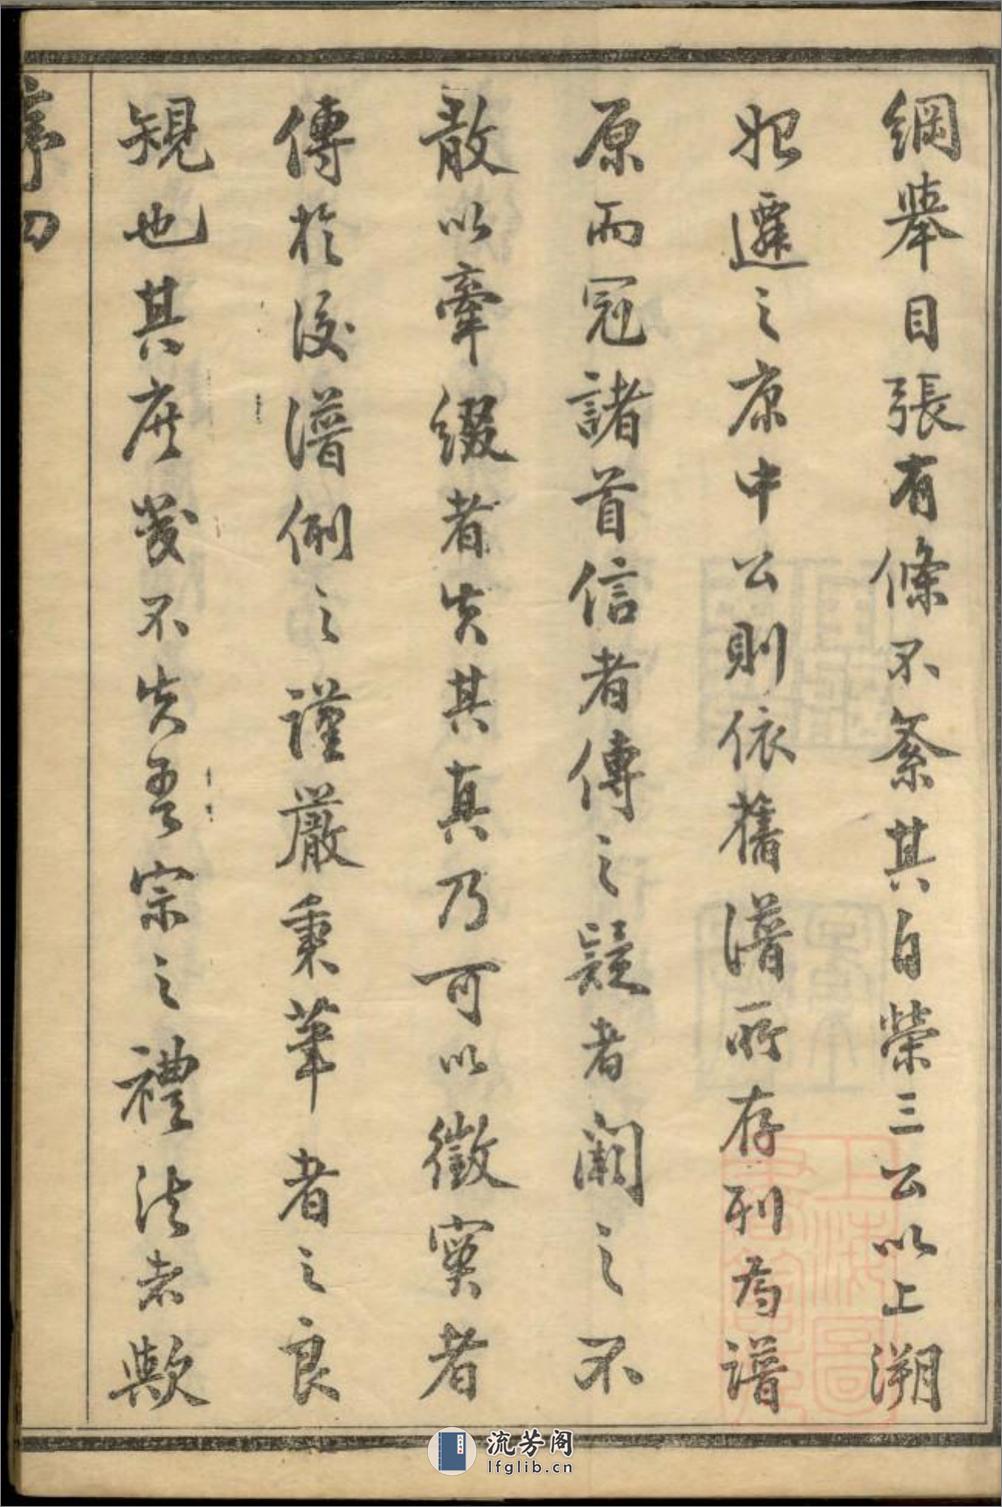 綱舉目張有條不紊其自榮三公以上溯
始遷之原中公則依舊譜所存列為譜
原而冠諸首信者傳之疑者闕之不
散以牽綴者失其真乃可以徵實者
傳於後譜例之謹嚴秉筆者之良
規也其庶幾不失吾宗之禮法者歟
序四
上海圖書館藏
流芳阁
lfglib.cn